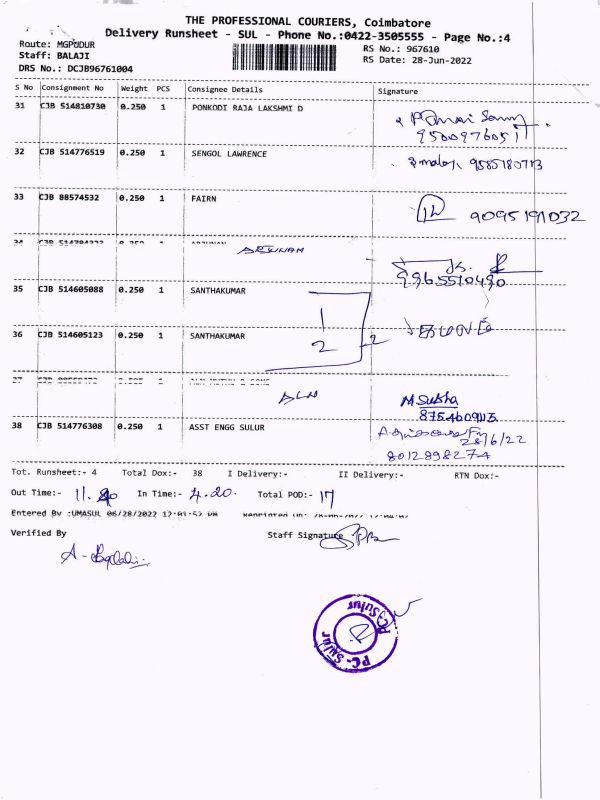 THE PROFESSIONAL COURIERS, Coimbatore
Delivery Runsheet - SUL - Phone No.:0422-3505555 - Page No.:4
Route: MGPUDUR
RS No.: 967610
Staff: BALAJI
RS Date: 28-Jun-2022
DRS No.: DCJB96761004
S No Consignment No Weight PCS Consignee Details Signature
31 CJB 514810730 0.250 1 PONKODI RAJA LAKSHMI D
9500976051
32 CJB 514776519 0.250 1 SENGOL LAWRENCE
9585180713
33 CJB 88574532 0.250 1 FAIRN
9095191032
34 ARJUNAN
9965510490
35 CJB 514605088 0.250 1 SANTHAKUMAR
1
2
36 CJB 514605123 0.250 1 SANTHAKUMAR
37 ALN
M Subha
38 CJB 514776308 0.250 1 ASST ENGG SULUR
28/6/22
8012898274
Tot. Runsheet:- 4 Total Dox:- 38 I Delivery:- II Delivery:- RTN Dox:-
Out Time:- In Time:- 4.20. Total POD:- 17
Entered By :UMASUL 06/28/2022
Verified By
Staff Signature
PC-Sulur
PC-Sulur